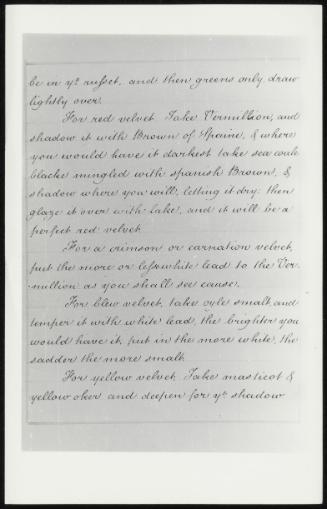 be in yt. russet, and then greens only draw
lightly over.
For red velvet. Take Vermillion, and
shadow it with Brown of Spaine, & where
you would have it darkest take sea coale
blacke mingled with spanish Brown, &
shadow where you will, letting it dry: then
glaze it over with lake, and it will be a
perfect red velvet.
For a crimson or carnation velvet,
put the more or lesse white lead to the Ver-
million as you shall see cause.
For blew velvet, take oyle smalt, and
temper it with white lead, the brighter you
would have it, put in the more white, the
sadder the more smalt.
For yellow velvet. Take masticot &
yellow oker and deepen for yt. shadow